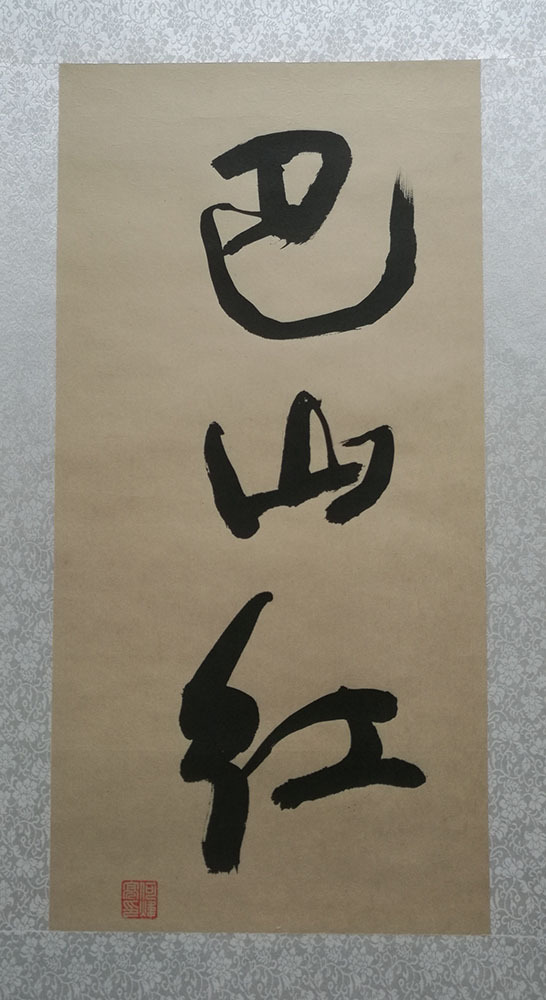 巴山红